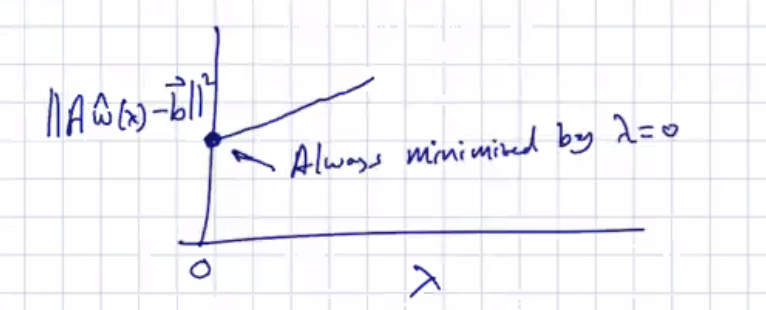 ||Aŵ(λ)-b⃗||²
Always minimized by λ=0
0
λ